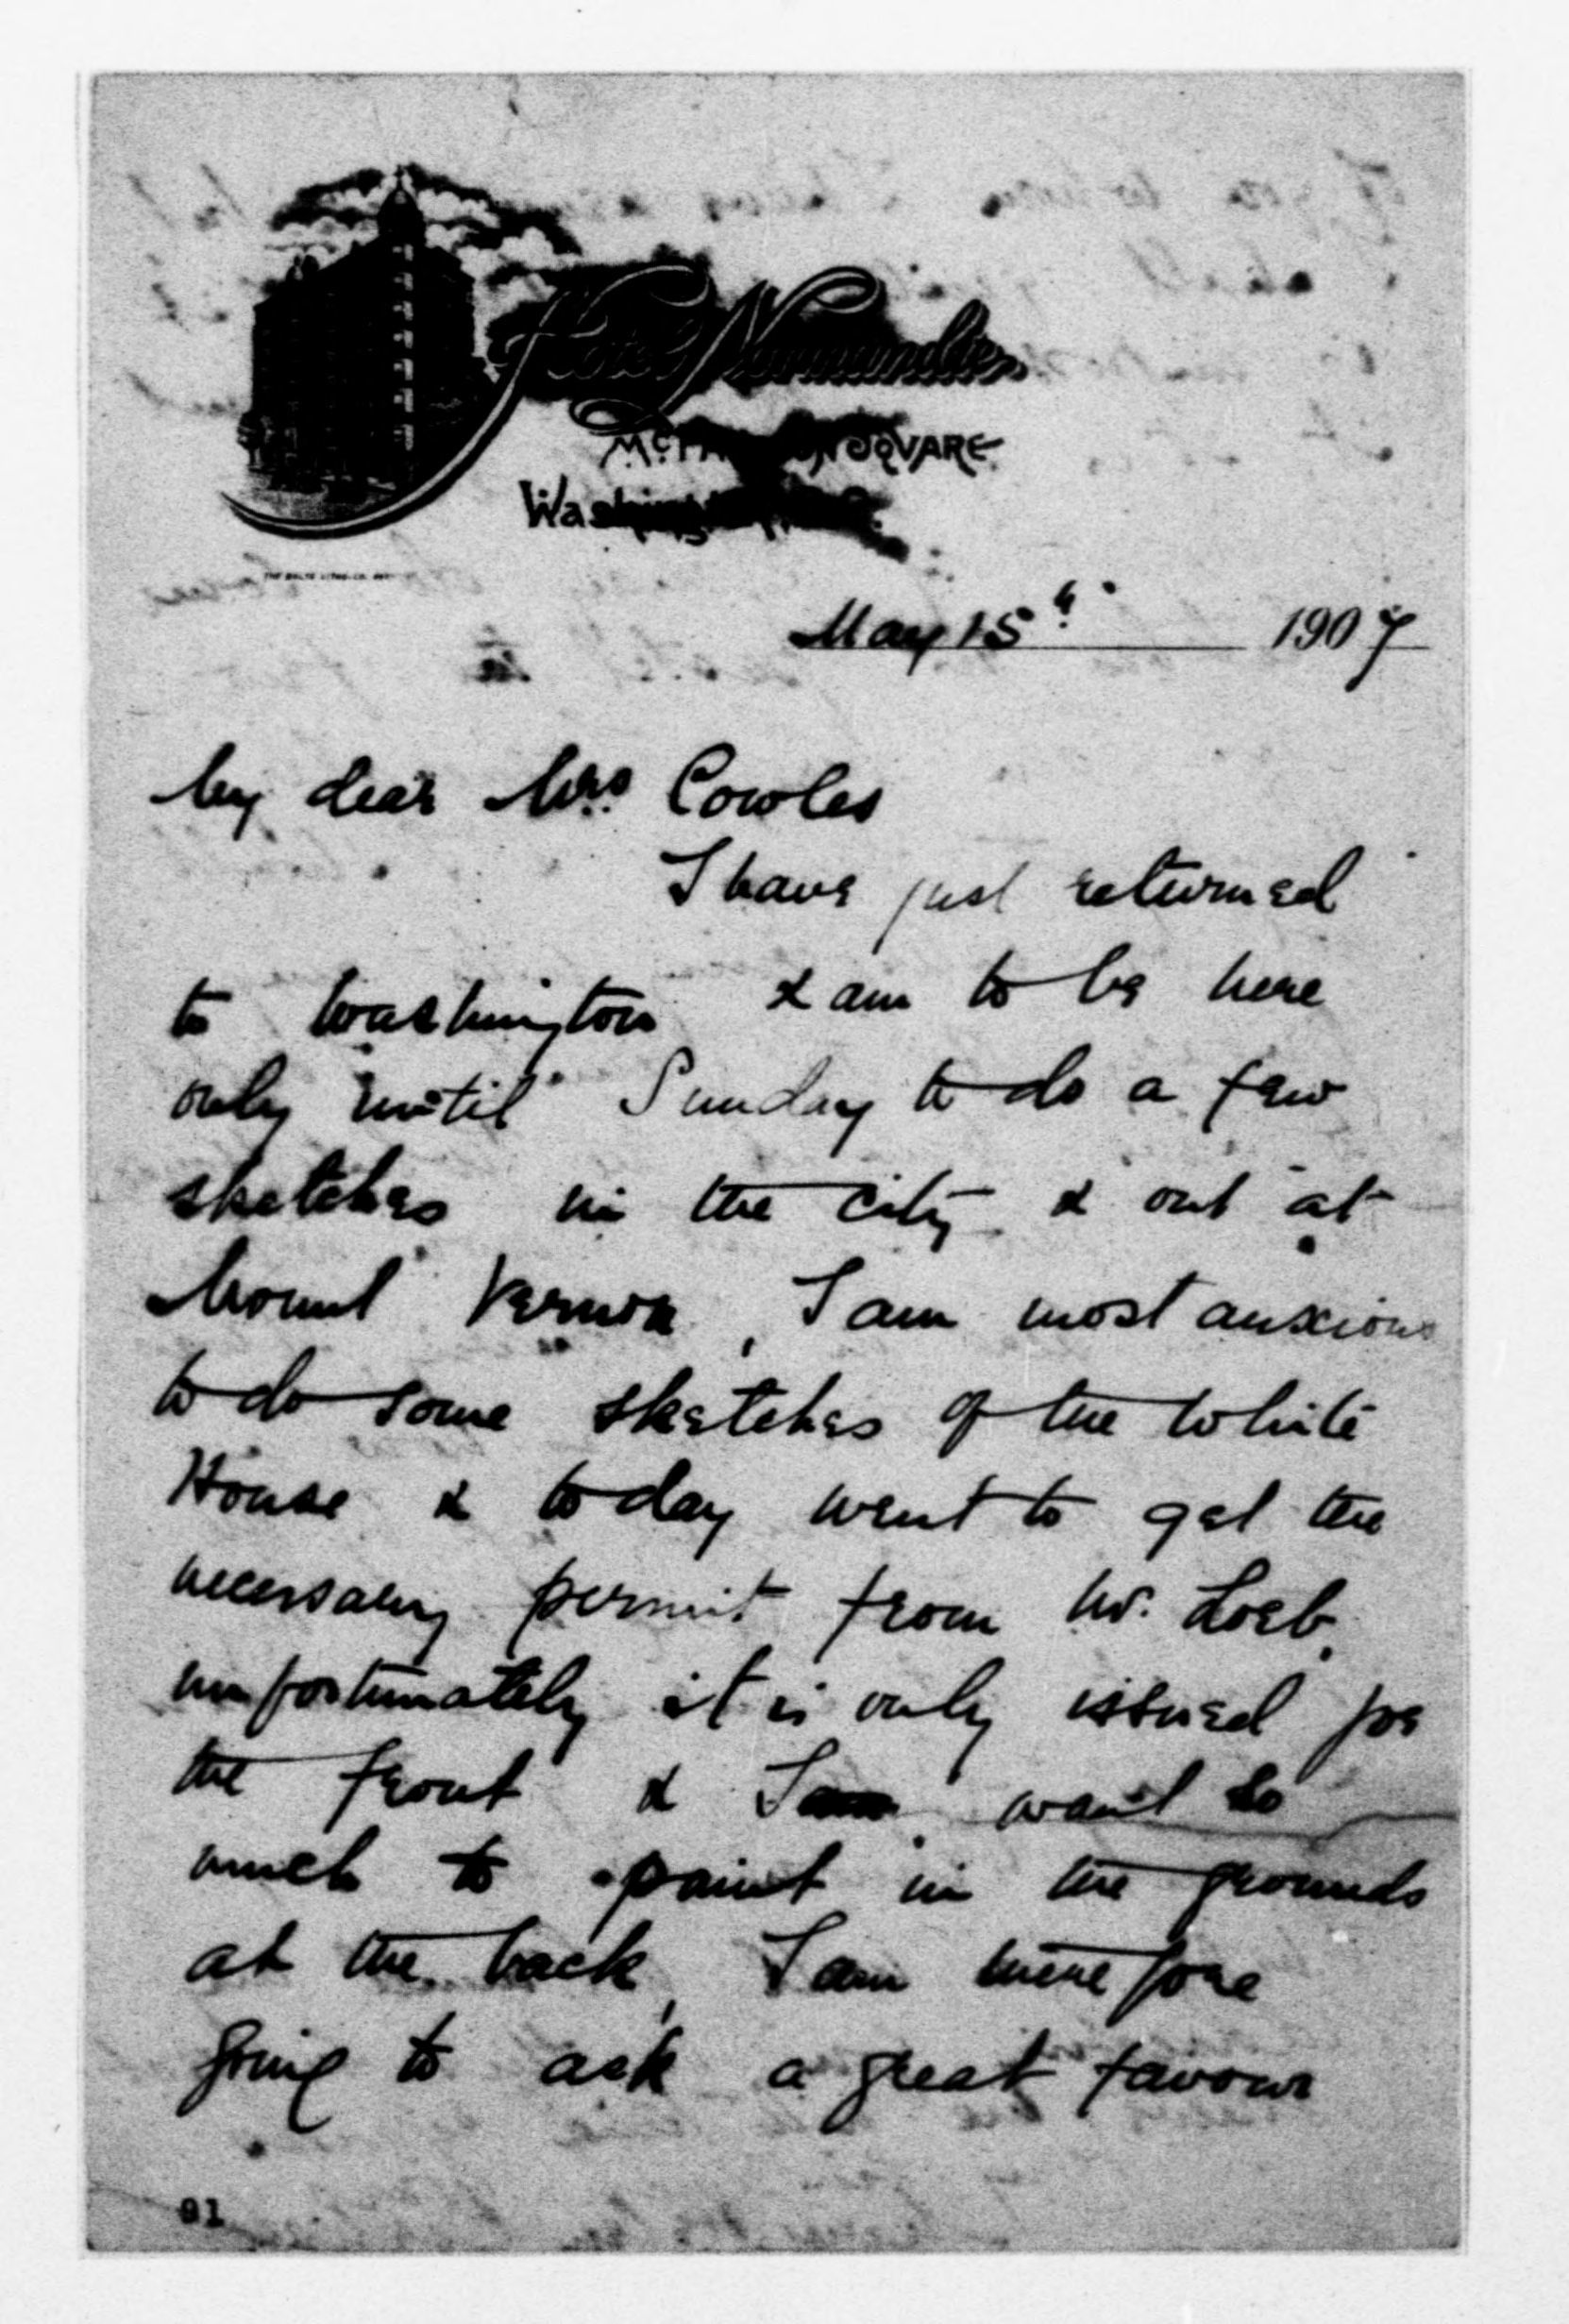 Hotel Normandie
McPherson Square
Washington, D.C.
May 15th 1907
My dear Mrs. Cowles
I have just returned
to Washington & am to be here
only until Sunday to do a few
sketches in the city & out at
Mount Vernon, I am most anxious
to do some sketches of the White
House & today went to get the
necessary permit from Mr. Loeb,
unfortunately it is only issued for
the front & I want so
much to paint in the grounds
at the back, I am therefore
going to ask a great favour
91